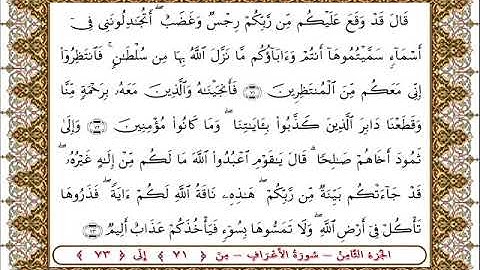 قَالَ قَدْ وَقَعَ عَلَيْكُم مِّن رَّبِّكُمْ رِجْسٌ وَغَضَبٌ ۖ أَتُجَٰدِلُونَنِى فِىٓ
أَسْمَآءٍ سَمَّيْتُمُوهَآ أَنتُمْ وَءَابَآؤُكُم مَّا نَزَّلَ ٱللَّهُ بِهَا مِن سُلْطَٰنٍ ۚ فَٱنتَظِرُوٓا۟
إِنِّى مَعَكُم مِّنَ ٱلْمُنتَظِرِينَ ﴿٧١﴾ فَأَنجَيْنَٰهُ وَٱلَّذِينَ مَعَهُۥ بِرَحْمَةٍ مِّنَّا
وَقَطَعْنَا دَابِرَ ٱلَّذِينَ كَذَّبُوا۟ بِـَٔايَٰتِنَا ۖ وَمَا كَانُوا۟ مُؤْمِنِينَ ﴿٧٢﴾ وَإِلَىٰ
ثَمُودَ أَخَاهُمْ صَٰلِحًا ۗ قَالَ يَٰقَوْمِ ٱعْبُدُوا۟ ٱللَّهَ مَا لَكُم مِّنْ إِلَٰهٍ غَيْرُهُۥ ۖ
قَدْ جَآءَتْكُم بَيِّنَةٌ مِّن رَّبِّكُمْ ۖ هَٰذِهِۦ نَاقَةُ ٱللَّهِ لَكُمْ ءَايَةً ۖ فَذَرُوهَا
تَأْكُلْ فِىٓ أَرْضِ ٱللَّهِ ۖ وَلَا تَمَسُّوهَا بِسُوٓءٍ فَيَأْخُذَكُمْ عَذَابٌ أَلِيمٌ ﴿٧٣﴾
الجزء الثَّامِنُ - سُورَةُ الأَعْرَافِ - مِنْ ﴿ ٧١ ﴾ إِلَى ﴿ ٧٣ ﴾